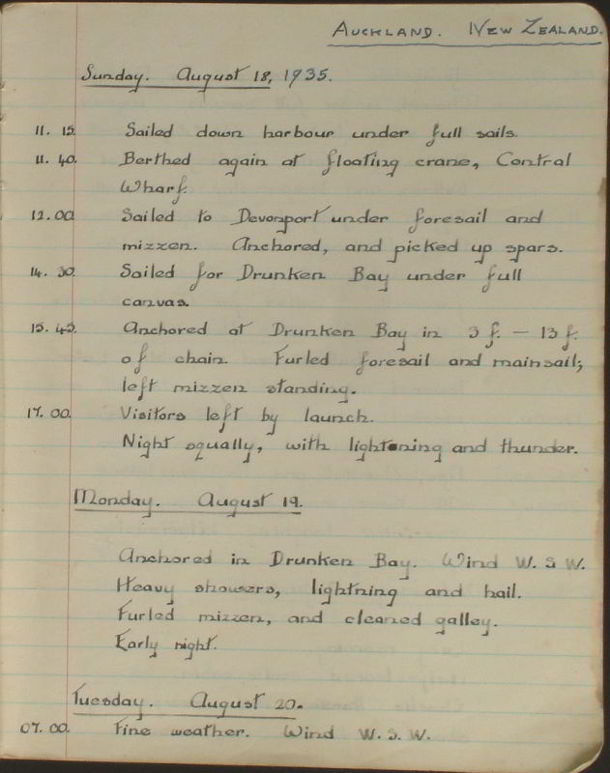 AUCKLAND. NEW ZEALAND.
Sunday. August 18, 1935.
11. 15. Sailed down harbour under full sails.
11. 40. Berthed again at floating crane, Central
Wharf.
12.00 Sailed to Devonport under foresail and
mizzen. Anchored, and picked up spars.
14. 30. Sailed for Drunken Bay under full
canvas.
15. 45. Anchored at Drunken Bay in 3 f. — 13 f.
of chain. Furled foresail and mainsail;
left mizzen standing.
17. 00. Visitors left by launch.
Night squally, with lightening and thunder.
Monday. August 19.
Anchored in Drunken Bay. Wind W. S W.
Heavy showers, lightning and hail.
Furled mizzen, and cleaned galley.
Early night.
Tuesday. August 20.
07. 00. Fine weather. Wind W. S. W.